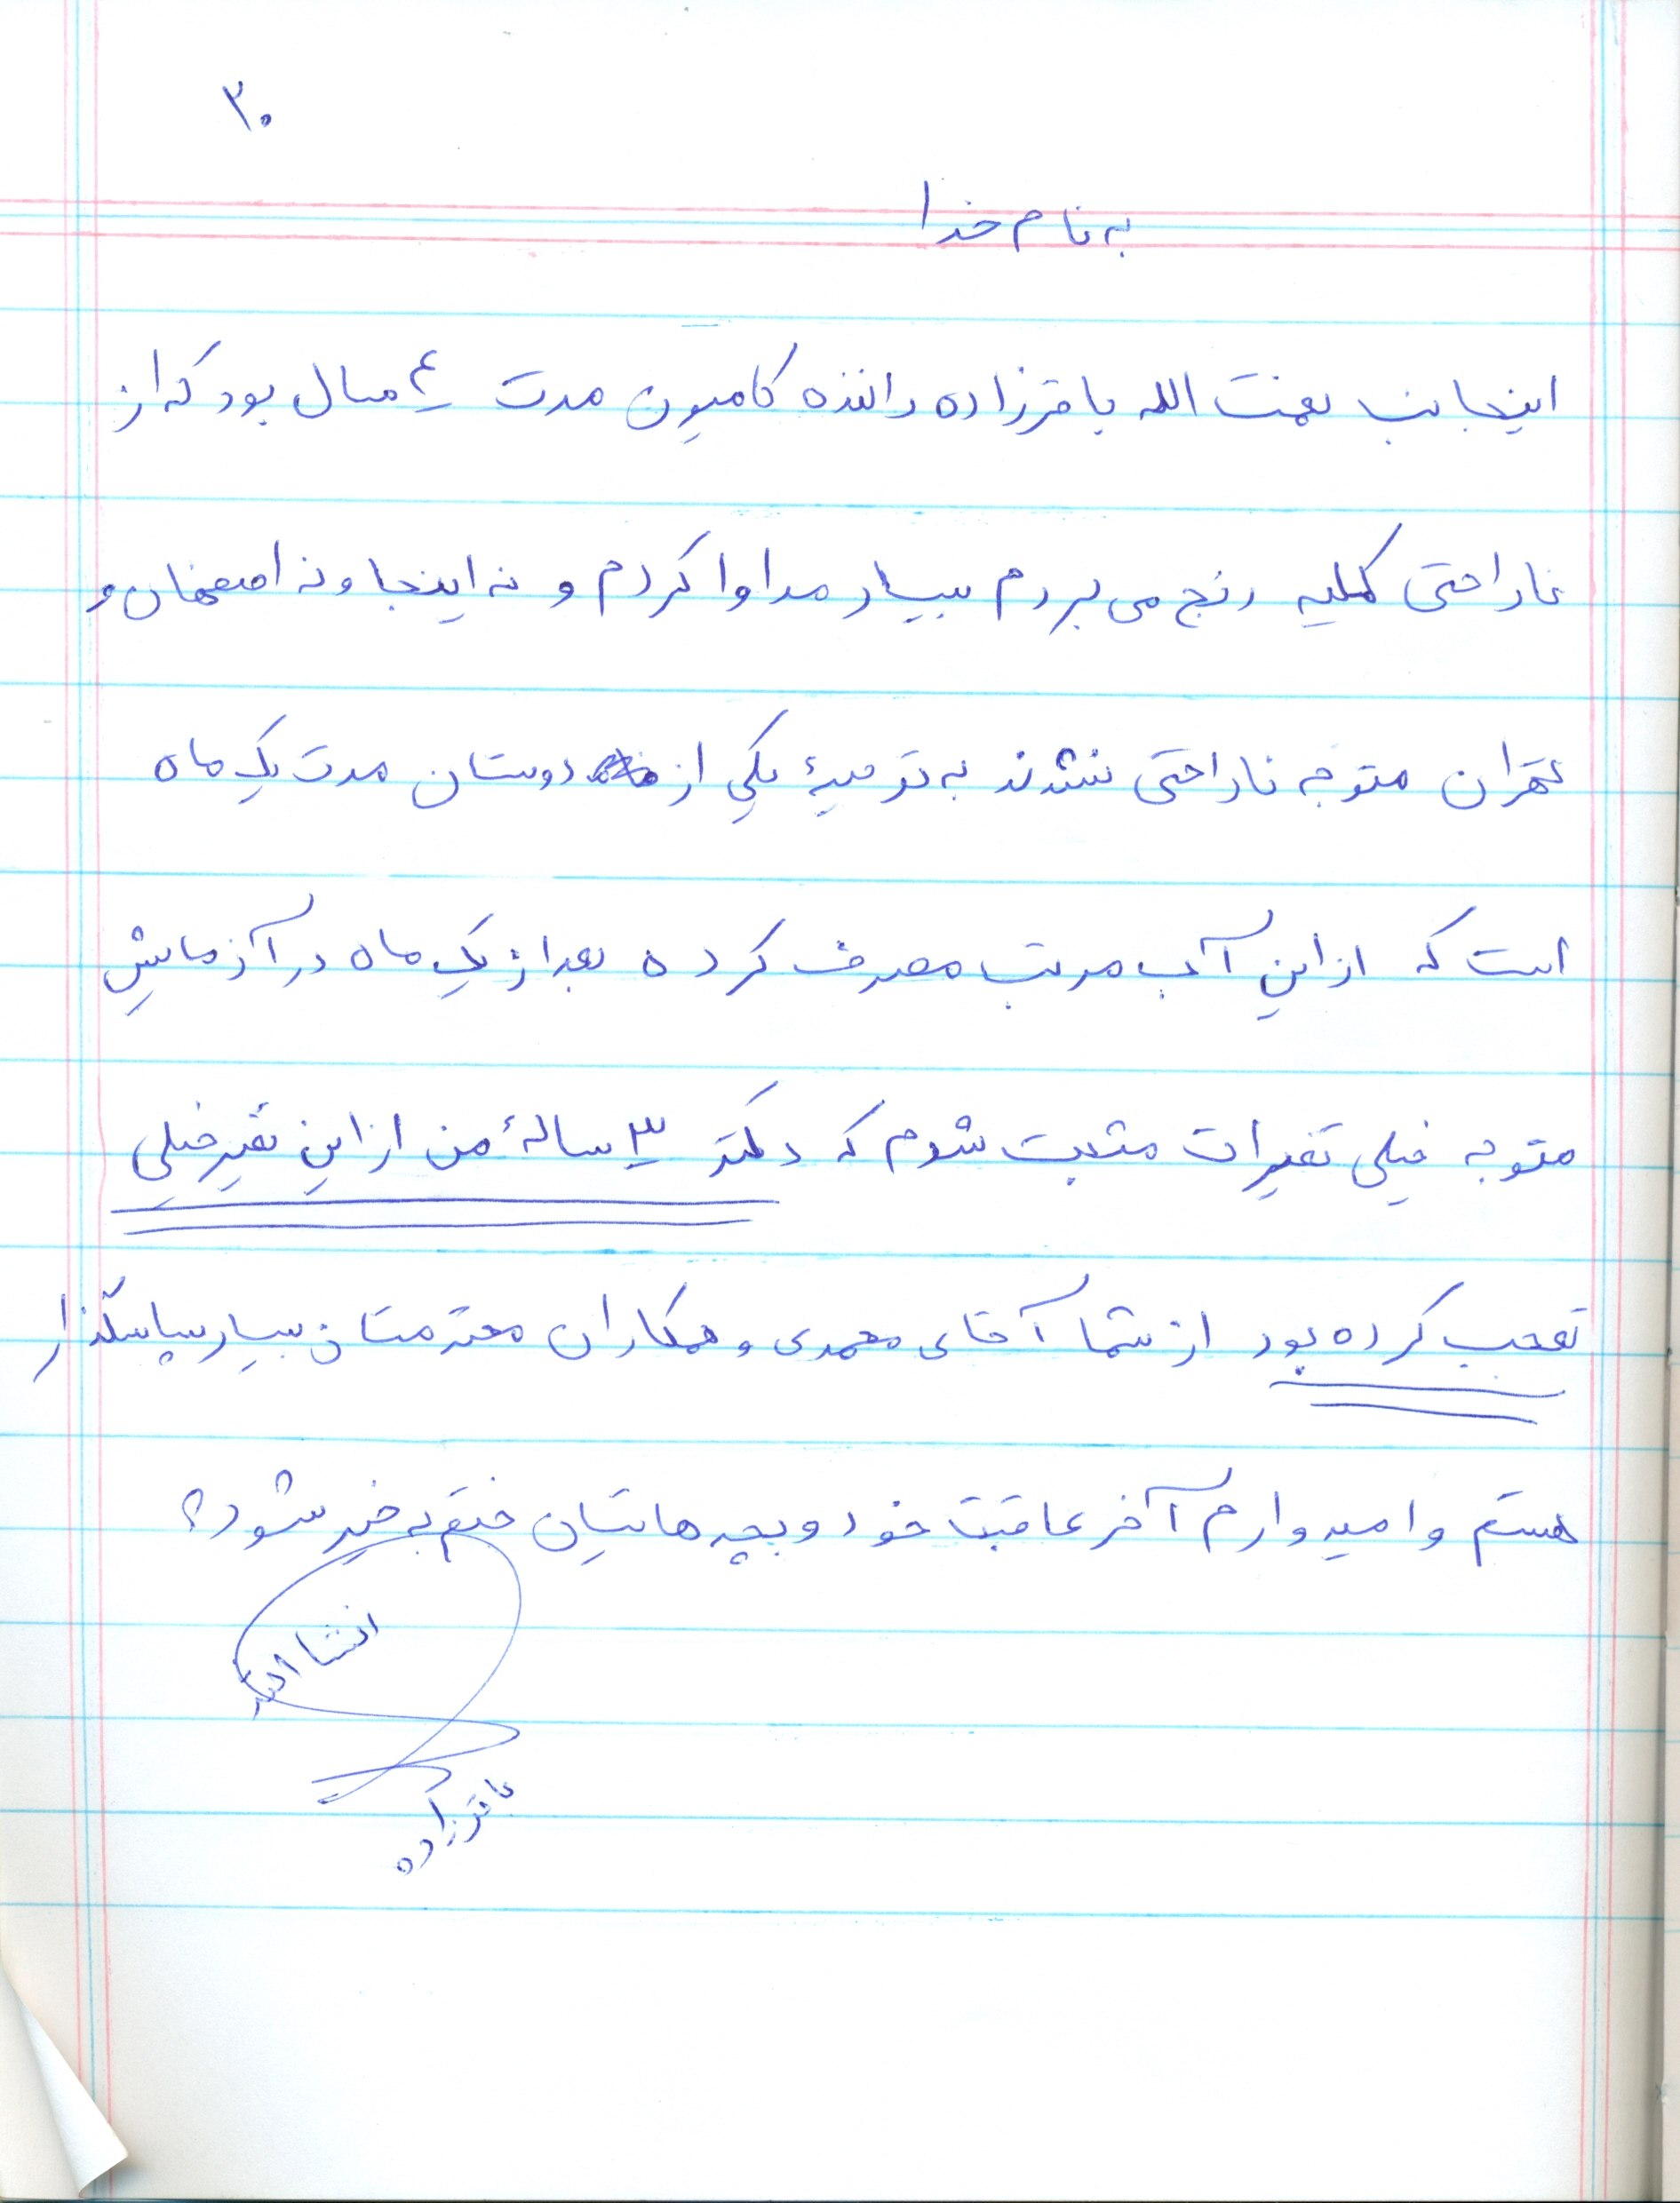 ۲۰
به نام خدا
اینجانب نعمت الله باقرزاده راننده کامیون مدت ۴ سال بود که از
ناراحتی کلیه رنج می بردم بسیار مداوا کردم و نه اینجا و نه اصفهان و
تهران متوجه ناراحتی نشدند به توصیهٔ یکی از دوستان مدت یک ماه
است که از این آب مرتب مصرف کرده بعد از یک ماه در آزمایش
متوجه خیلی تغیرات مثبت شدم که دکتر ۳ سالهٔ من از این تغیر خیلی
تعجب کرده بود از شما آقای محمدی و همکاران محترمتان بسیار سپاسگذار
هستم و امیدوارم آخر عاقبت خود و بچه هایتان ختم به خیر شود؟
انشا الله
باقرزاده